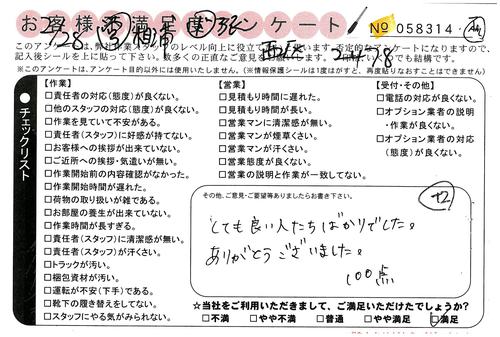 お客様満足度アンケート
No 058314
7/28
このアンケートは、弊社作業スタッフのレベル向上に役立て
記入後シールを上に貼って下さい。数多くの正直なご意見を
※このアンケートは、アンケート目的以外には使用いたしません。(※情報保護シールは1度はがすと、再度貼りなおすことはできません)
チェックリスト
【作業】
□責任者の対応(態度)が良くない。
□他のスタッフの対応(態度)が良くない。
□作業を見ていて不安がある。
□責任者(スタッフ)に好感が持てない。
□お客様への挨拶が出来ていない。
□ご近所への挨拶・気遣いが無い。
□作業開始前の内容確認がなかった。
□作業開始時間が遅れた。
□荷物の取り扱いが雑である。
□お部屋の養生が出来ていない。
□作業時間が長すぎる。
□責任者(スタッフ)に清潔感が無い。
□責任者(スタッフ)が汗くさい。
□トラックが汚い。
□梱包資材が汚い。
□運転が不安(下手)である。
□靴下の履き替えをしてない。
□スタッフにやる気がみられない。
【営業】
□見積もり時間に遅れた。
□見積もり時間が長い。
□営業マンに清潔感が無い。
□営業マンが煙草くさい。
□営業マンが汗くさい。
□営業態度が良くない。
□営業の説明と作業が一致してない。
【受付・その他】
□電話の対応が良くない。
□オプション業者の説明
・作業が良くない。
□オプション業者の対応
(態度)が良くない。
その他、ご意見・ご要望等ありましたらお書き下さい。
とても良い人たちばかりでした。
ありがとうございました。
100点
☆当社をご利用いただきまして、ご満足いただけたでしょうか?
□不満 □やや不満 □普通 □やや満足 □満足